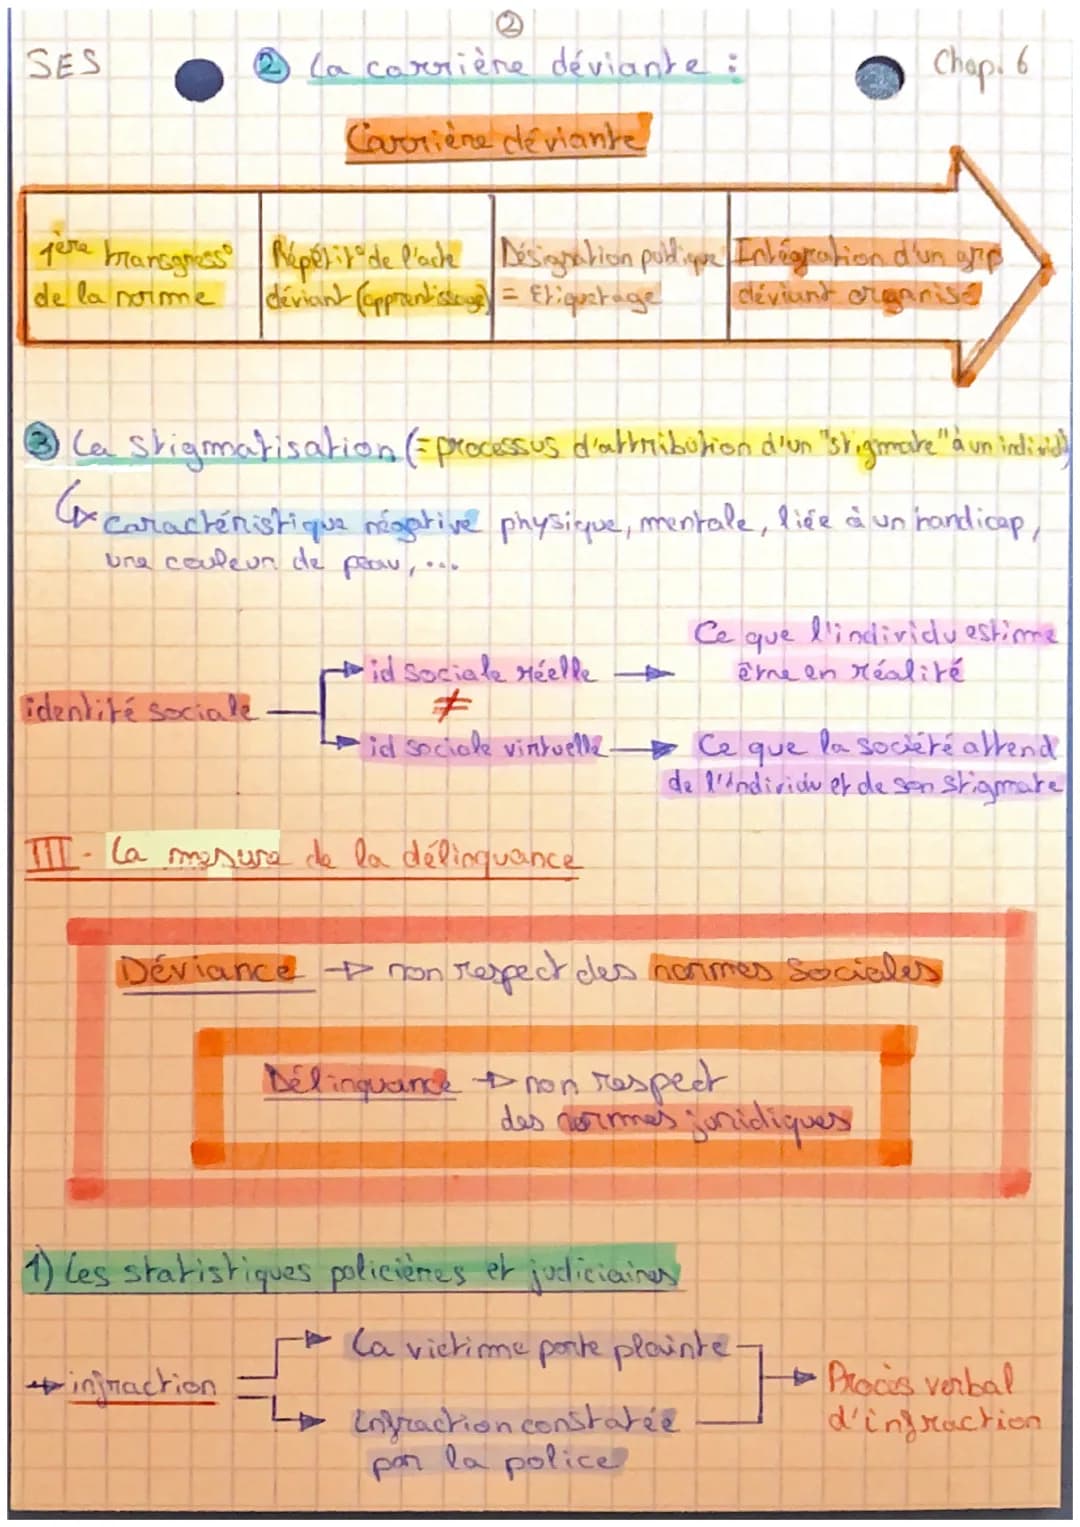 ②
SES
② La carrière déviante :
Chap. 6
Carrière déviante
1ère transgress° de la norme
Répétit° de l'acte déviant (apprentissage)
Désignation publique = Etiquetage
Intégration d'un grp déviant organisé
③ La stigmatisation (= processus d'attribution d'un "stigmate" à un individu)
↳ caractéristique négative physique, mentale, liée à un handicap,
une couleur de peau, ...
identité sociale
id sociale réelle
≠
id sociale virtuelle
Ce que l'individu estime
être en réalité
Ce que la société attend
de l'individu et de son stigmate
III - La mesure de la délinquance
Déviance → non respect des normes sociales
Délinquance → non respect
des normes juridiques
1) Les statistiques policières et judiciaires
→ infraction
La victime porte plainte
Infraction constatée
par la police
Procès verbal
d'infraction